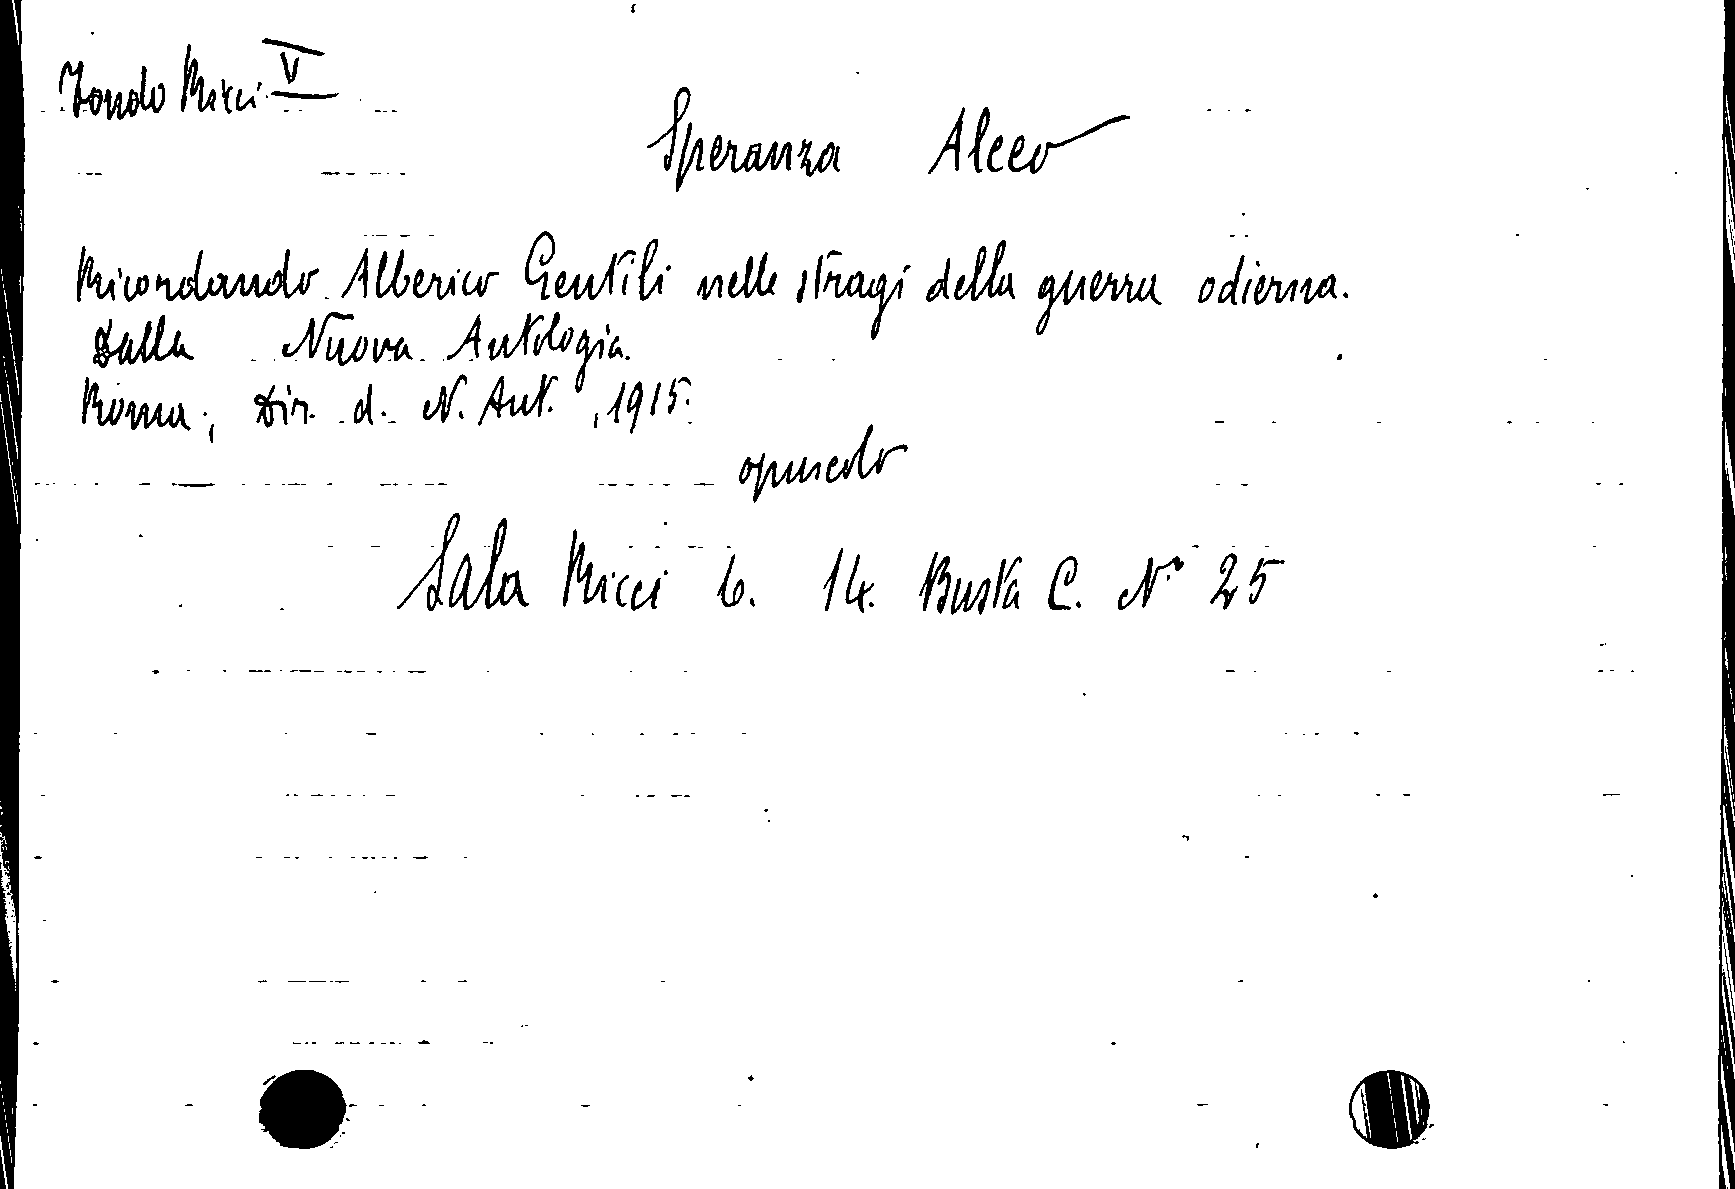 Fondo Ricci V
Speranza Alceo
Ricordando Alberico Gentili nelle stragi della guerra odierna.
Dalla Nuova Antologia.
Roma, Dir. d. N. Ant., 1915.
opuscolo
Sala Ricci 6. 14. Busta C. N° 25